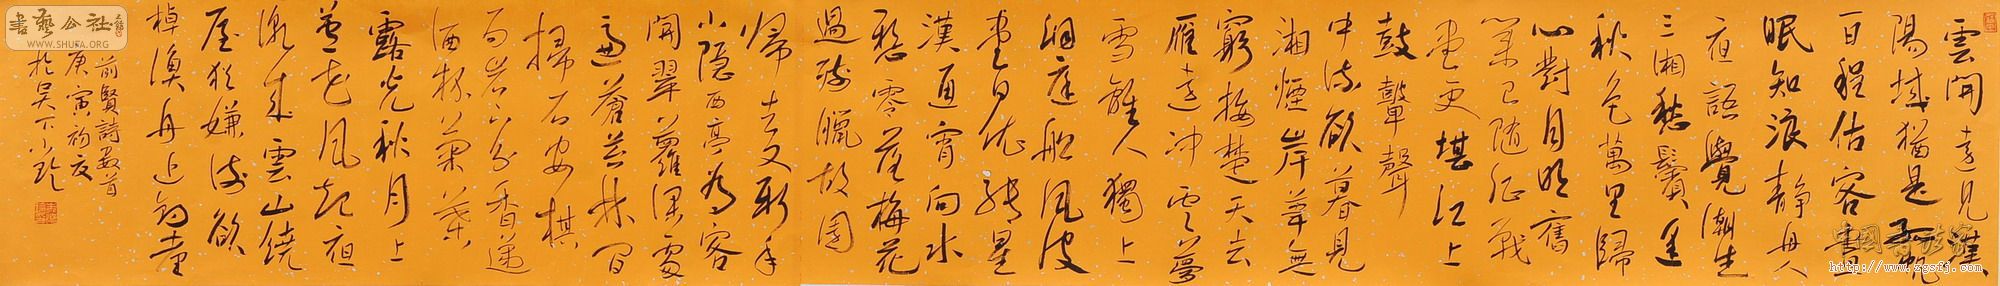 雲開遠見漢
陽城猶是孤帆
一日程估客晝
眠知浪靜舟人
夜語覺潮生
三湘愁鬢逢
秋色萬里歸
心對月明舊
業已隨征戰
盡更堪江上
鼓鼙聲
中流欲暮見
湘煙岸葦無
窮接楚天去
雁遠沖雲夢
雪離人獨上
洞庭船風波
盡日依轉星
漢通宵向水
懸零落梅花
過殘臘故園
歸去又新年
小隱西亭為客
開翠蘿深處
遍蒼苔林間
掃石安棋
局岩下分香遞
酒杯蘭葉
露光秋月上
蘆花風起夜
潮來雲山繞
屋猶嫌淺欲
棹漁舟近釣臺
前賢詩數首
庚寅初夏
於吳下小
書藝公社
WWW.SHUFA.ORG
http://www.zgsfj.com